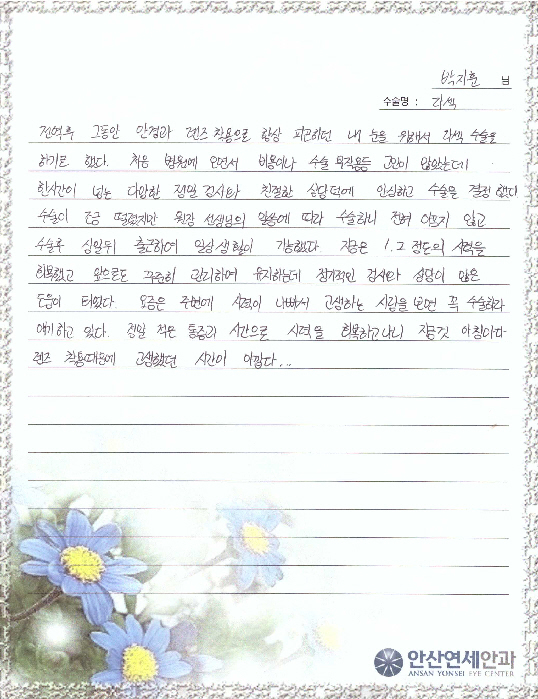 박지훈 님
수술명 : 라섹
전역후 그동안 안경과 렌즈 착용으로 항상 피곤하던 내 눈을 위해서 라섹 수술을
하기로 했다. 처음 병원에 오면서 비용이나 수술 부작용등 고민이 많았는데
한시간이 넘는 다양한 정밀 검사와 친절한 상담덕에 안심하고 수술을 결정 했다
수술이 조금 떨렸지만 원장 선생님의 말씀에 따라 수술하니 전혀 아프지 않고
수술후 삼일뒤 출근하여 일상생활이 가능했다. 지금은 1.2 정도의 시력을
회복했고 앞으로도 꾸준히 관리하여 유지하는데 정기적인 검사와 상담이 많은
도움이 되었다. 요즘은 주변에 시력이 나빠서 고생하는 사람을 보면 꼭 수술하라
얘기하고 있다. 정말 적은 통증과 시간으로 시력을 회복하고나니 지금것 아침마다
렌즈 착용때문에 고생했던 시간이 아깝다...
안산연세안과
ANSAN YONSEI EYE CENTER